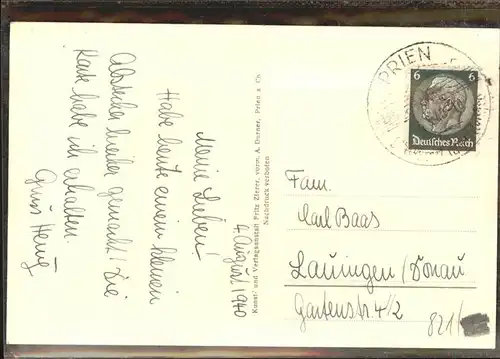 4. August 1940
Meine Lieben!
Habe heute einen kleinen
Abstecher hierher gemacht! Die
Karte habe ich erhalten.
Gruss
Kunst- und Verlagsanstalt Fritz Zierer, vorm. A. Durner, Prien a. Ch.
Nachdruck verboten
PRIEN
6 6
Deutsches Reich
Fam.
Karl Baas
Lauingen/Donau
Gartenstr 4 1/2
821/